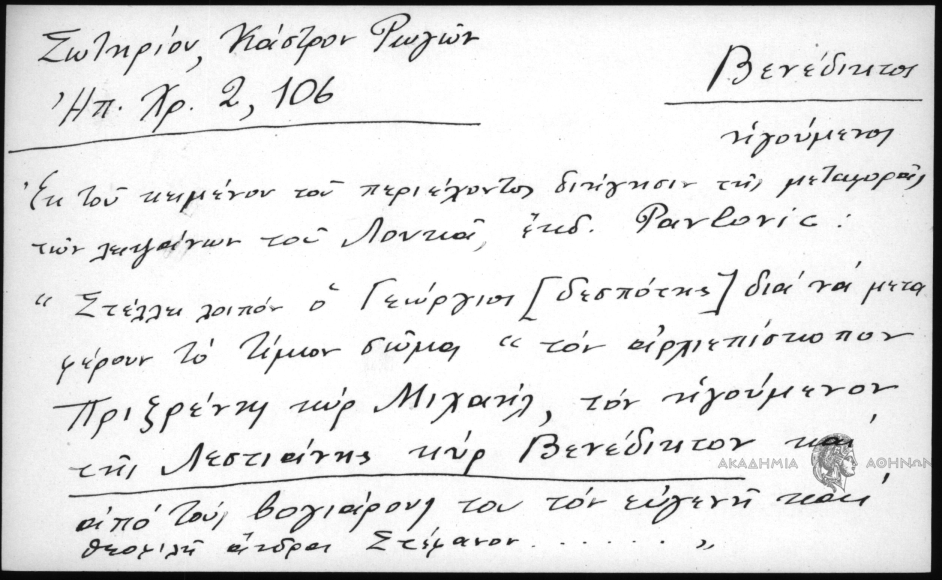 Σωτηρίου, Κάστρον Ρωγῶν
Ἠπ. Χρ. 2, 106
Βενέδικτος
ἡγούμενος
Ἐκ τοῦ κειμένου τοῦ περιέχοντος διήγησιν τῆς μεταφορᾶς
τῶν λειψάνων τοῦ Λουκᾶ, ἐκδ. Pavlovic :
" Στέλλει λοιπόν ὁ Γεώργιος [δεσπότης] διά νά μετα
φέρουν τό τίμιον σῶμα " τόν ἀρχιεπίσκοπον
Πριξρένης κύρ Μιχαήλ, τόν ἡγούμενον
τῆς Λεστιάνης κύρ Βενέδικτον καί
ΑΚΑΔΗΜΙΑ ΑΘΗΝΩΝ
ἀπό τούς βογιάρους του τόν εὐγενῆ καί
θεοφιλῆ ἄνδρα Στέφανον . . . . . . "